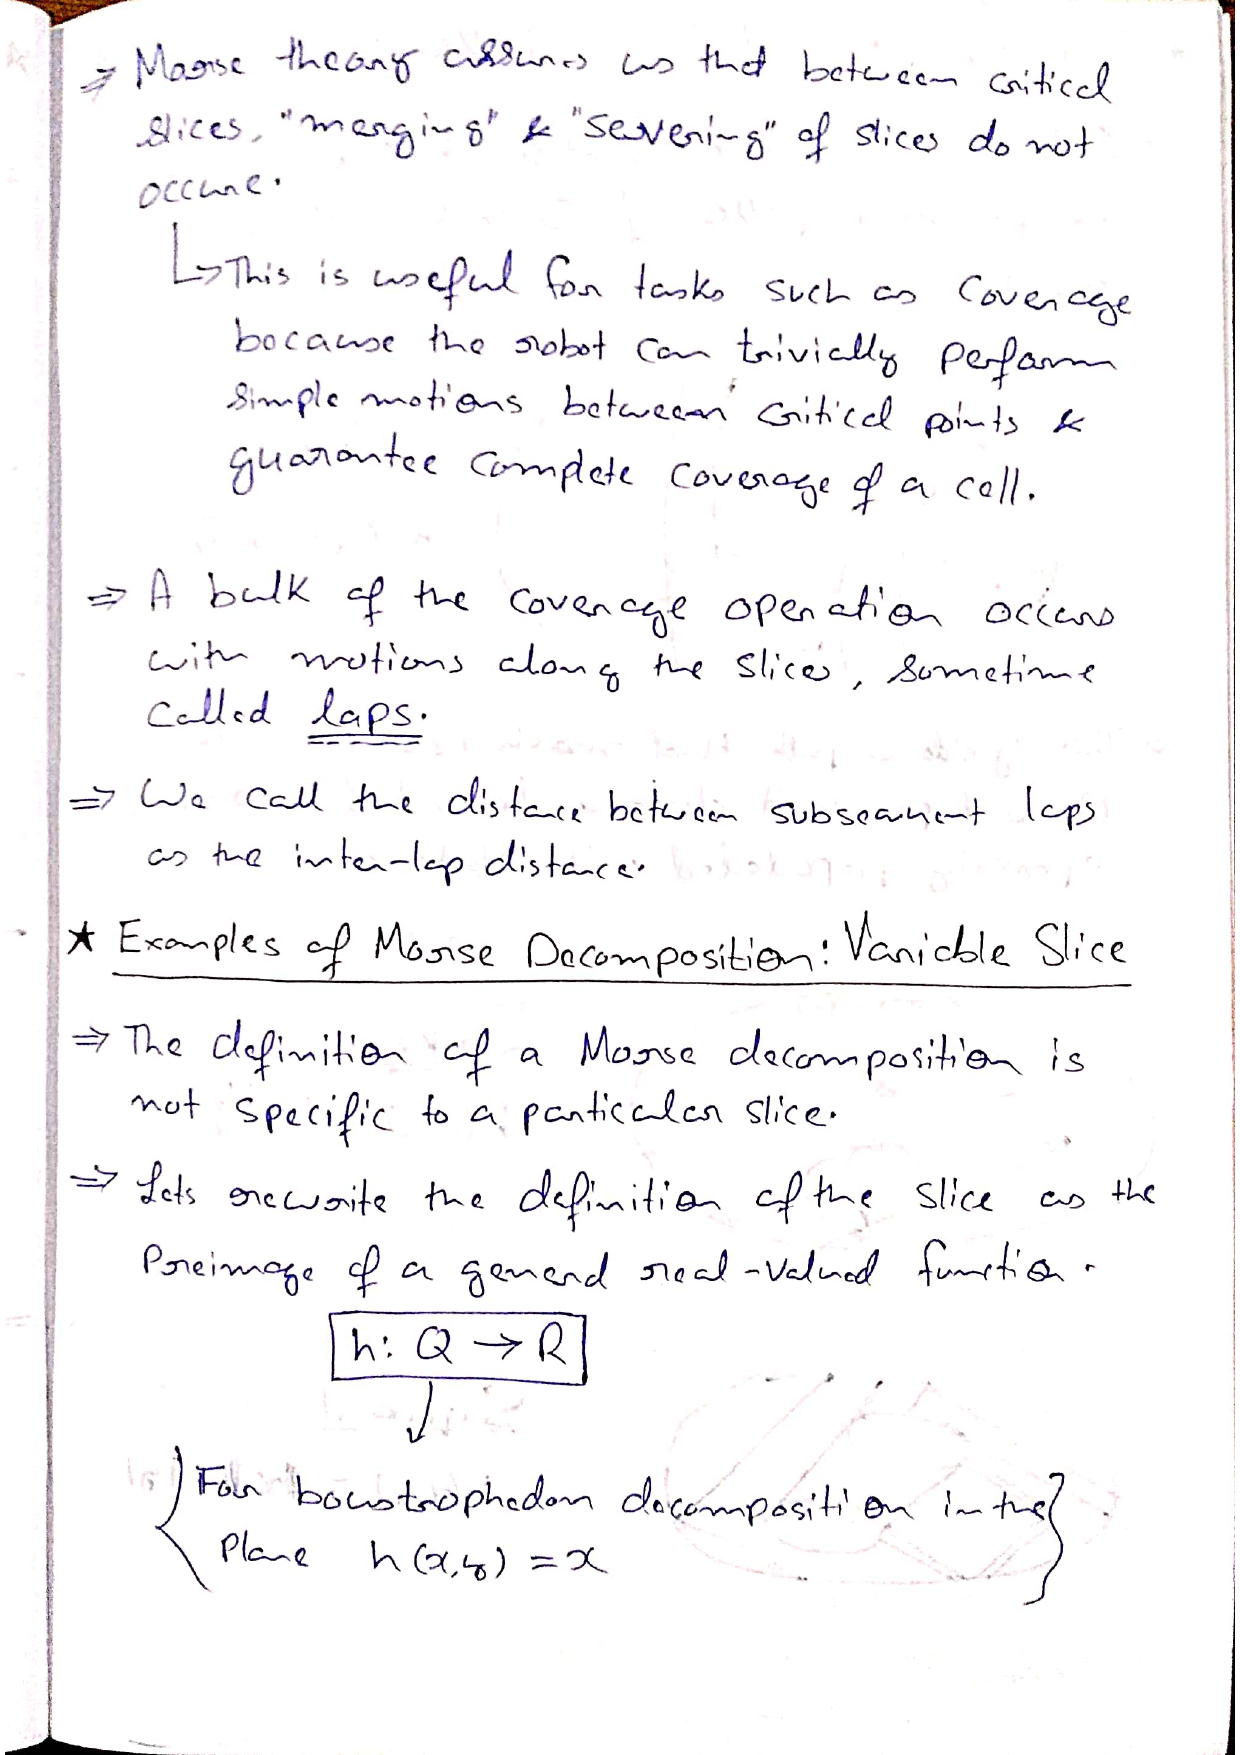 ⇒ Morse theory assures us that between critical
slices, "merging" & "severing" of slices do not
occure.
↳ This is useful for tasks such as coverage
because the robot can trivially perform
simple motions between critical points &
guarantee complete coverage of a cell.
⇒ A bulk of the coverage operation occurs
with motions along the slices, sometime
called laps.
⇒ We call the distance between subsequent laps
as the inter-lap distance.
★ Examples of Morse Decomposition: Variable Slice
⇒ The definition of a Morse decomposition is
not specific to a particular slice.
⇒ Lets rewrite the definition of the slice as the
Preimage of a general real-valued function.
h: Q → R
↓
{ For boustrophedon decomposition in the
Plane h(x,y) = x }